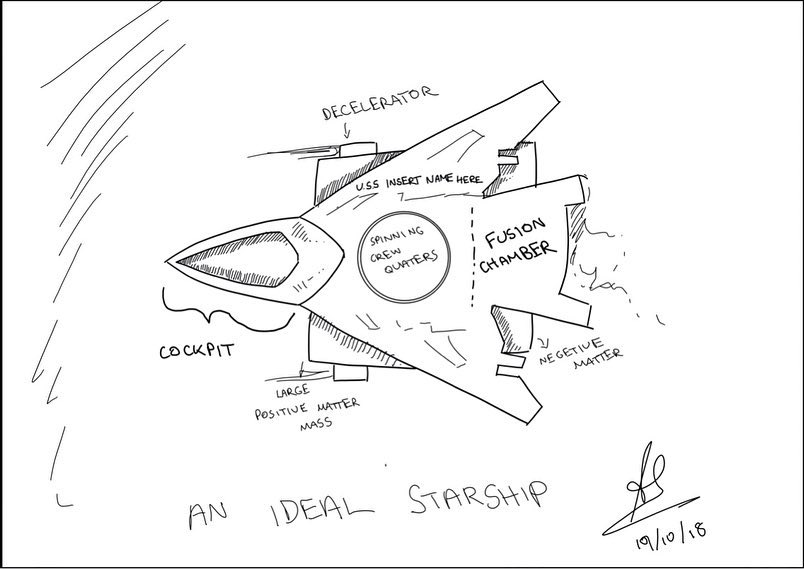 DECELERATOR
U.S.S INSERT NAME HERE
SPINNING
CREW
QUATERS
FUSION
CHAMBER
COCKPIT
NEGETIVE
MATTER
LARGE
POSITIVE MATTER
MASS
AN IDEAL STARSHIP
19/10/18